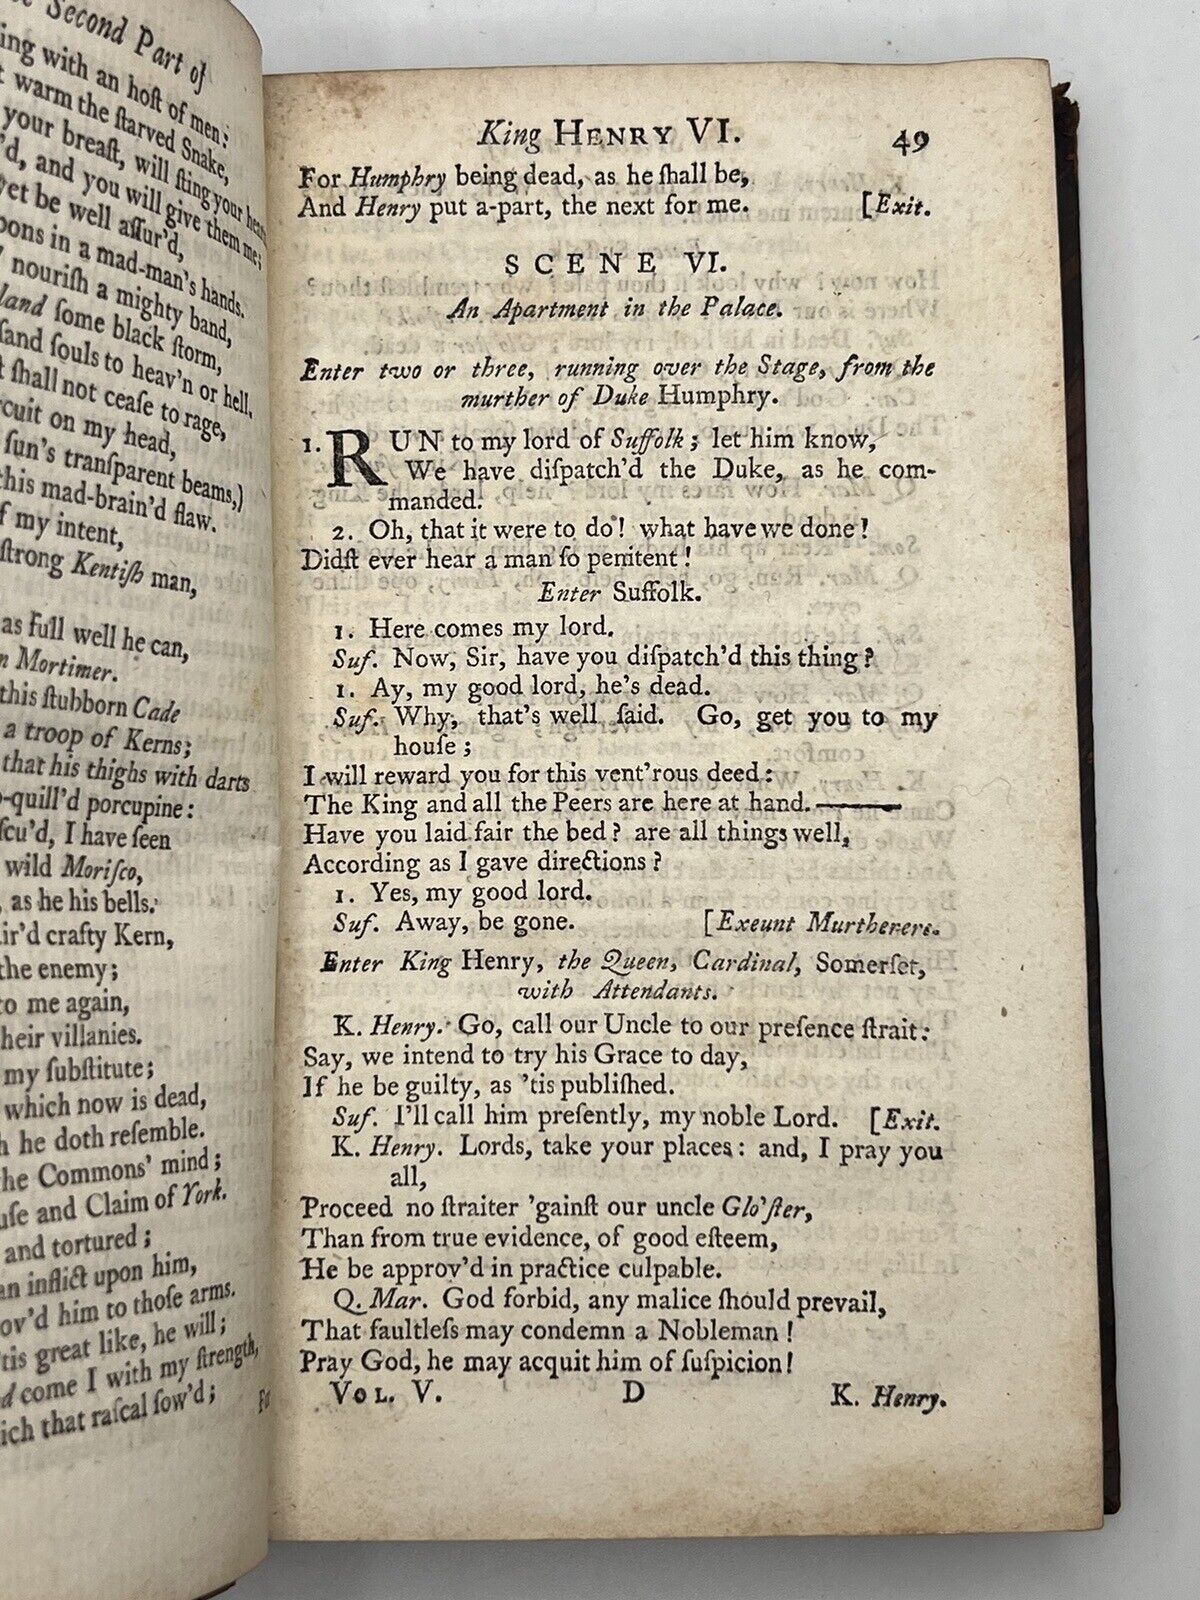 Second Part of
ing with an hoſt of men:
warm the ſtarved Snake,
your breaſt, will ſting your hearts
'd, and you will give them me;
yet be well aſſur'd,
pons in a mad-man's hands.
nouriſh a mighty band,
land ſome black ſtorm,
ſand ſouls to heav'n or hell.
ſhall not ceaſe to rage,
rcuit on my head,
ſun's tranſparent beams,)
this mad-brain'd flaw.
f my intent,
ſtrong Kentiſh man,
as full well he can,
n Mortimer.
this ſtubborn Cade
a troop of Kerns;
that his thighs with darts
-quill'd porcupine:
ſcu'd, I have ſeen
wild Moriſco,
, as he his bells.
air'd crafty Kern,
the enemy;
to me again,
heir villanies.
my ſubſtitute;
which now is dead,
h he doth reſemble.
the Commons' mind;
uſe and Claim of York.
and tortured;
an inflict upon him,
ov'd him to thoſe arms.
'tis great like, he will;
come I with my ſtrength,
ich that raſcal ſow'd;
King HENRY VI. 49
For Humphry being dead, as he ſhall be,
And Henry put a-part, the next for me. [Exit.
SCENE VI.
An Apartment in the Palace.
Enter two or three, running over the Stage, from the
murther of Duke Humphry.
1. RUN to my lord of Suffolk; let him know,
We have diſpatch'd the Duke, as he com-
manded.
2. Oh, that it were to do! what have we done!
Didſt ever hear a man ſo penitent!
Enter Suffolk.
1. Here comes my lord.
Suf. Now, Sir, have you diſpatch'd this thing?
1. Ay, my good lord, he's dead.
Suf. Why, that's well ſaid. Go, get you to my
houſe;
I will reward you for this vent'rous deed:
The King and all the Peers are here at hand.——
Have you laid fair the bed? are all things well,
According as I gave directions?
1. Yes, my good lord.
Suf. Away, be gone. [Exeunt Murtherers.
Enter King Henry, the Queen, Cardinal, Somerſet,
with Attendants.
K. Henry. Go, call our Uncle to our preſence ſtrait:
Say, we intend to try his Grace to day,
If he be guilty, as 'tis publiſhed.
Suf. I'll call him preſently, my noble Lord. [Exit.
K. Henry. Lords, take your places: and, I pray you
all,
Proceed no ſtraiter 'gainſt our uncle Glo'ſter,
Than from true evidence, of good eſteem,
He be approv'd in practice culpable.
Q. Mar. God forbid, any malice ſhould prevail,
That faultleſs may condemn a Nobleman!
Pray God, he may acquit him of ſuſpicion!
VOL. V. D K. Henry.